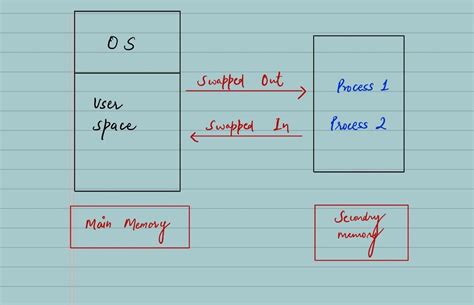 OS
User
space
Swapped Out
Swapped In
Process 1
Process 2
Main Memory
Secondry
memory